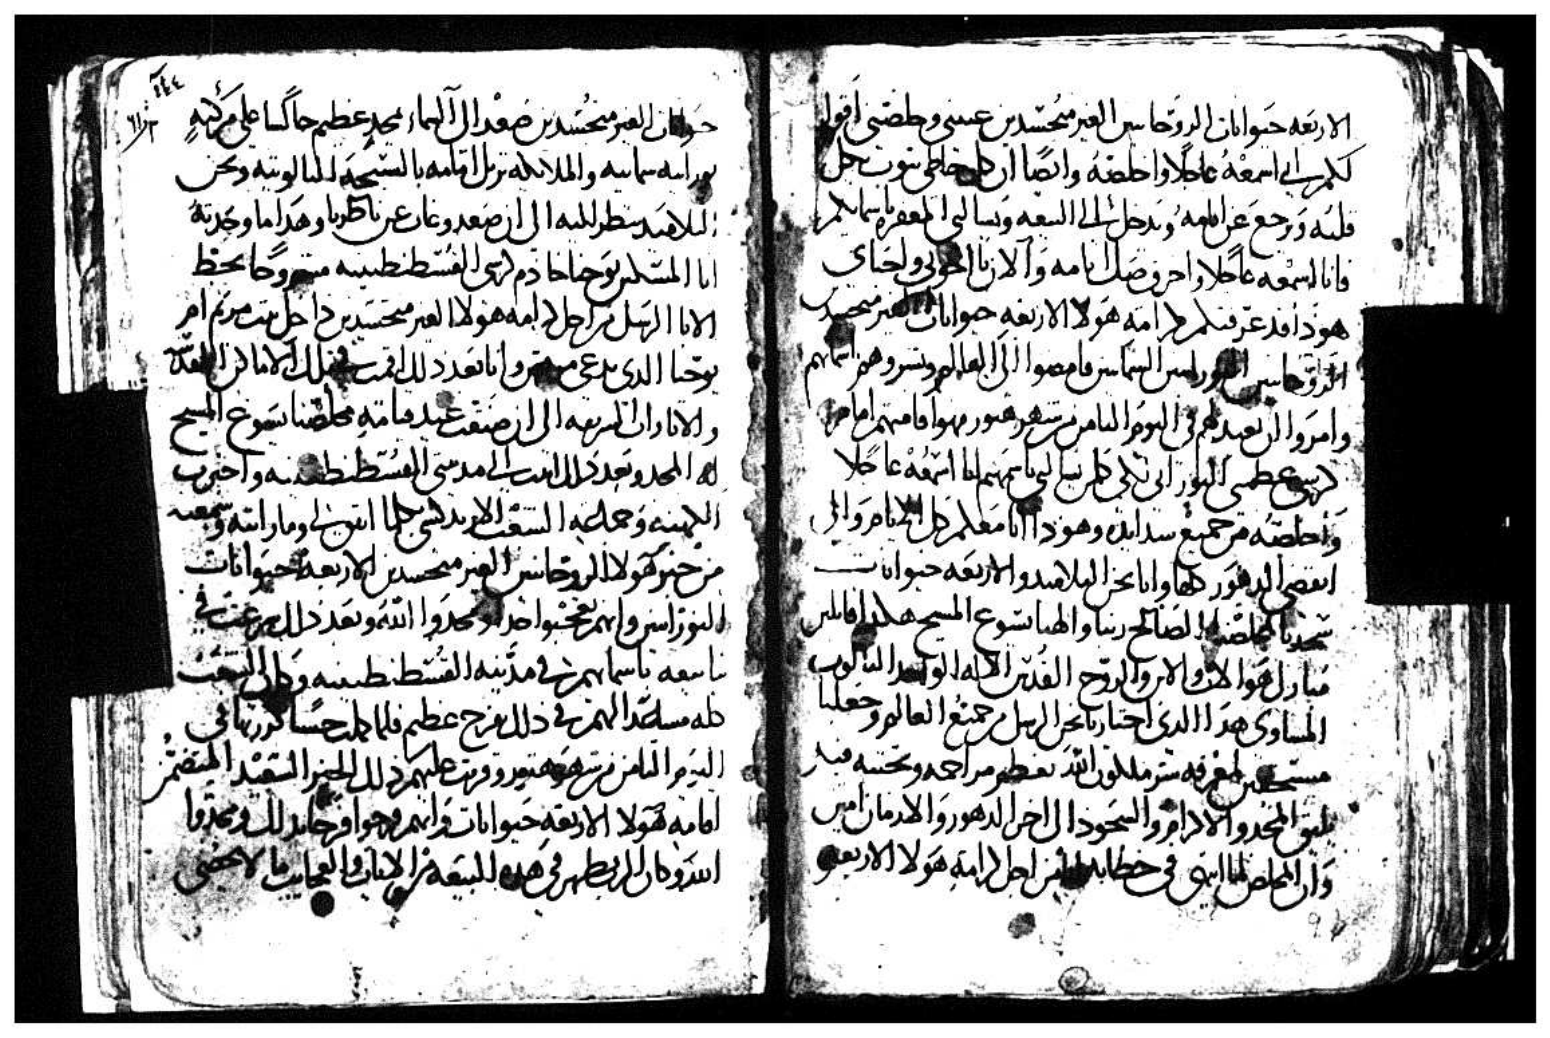 الاربعه حيوانات الروحانيين الغير متجسدين عينى وخلصنى اقول
لكم انى اسمعه عاجلا واخلصه وايضا ان كل خاطى يتوب بكل
قلبه ويرجع عن اثامه ويدخل الى البيعه ويسالنى المغفره باسمايكم
فانا اسمعه عاجلا واحرق صك اثامه والان يا اخوتى واحباى
هوذا قد عرفتكم كرامه هولا الاربعه حيوانات الغير متجسدين
الروحانيين النورانيين السماييين فامضوا الى العالم وبشروهم باسمايهم
وامروا ان يعيد لهم فى اليوم الثامن من شهر هتور
كرسى عظمتى النور انى لكى كل من يسالنى باسمهم انا اسمعه عاجلا
واخلصه من جميع شدايده وهوذا انا معكم كل الايام والى
انقضى الدهور كلها وانا نحن التلاميد والاربعه حيوانات
سجدنا لمخلصنا الصالح ربنا والهنا يسوع المسيح هكذا قايلين
مبارك هو الاب والابن والروح القدس الاله الواحد الثالوت
المساوى هذا الذى اختارنا نحن الرسل من جميع العالم وجعلنا
مستحقين لمعرفه سر ملكوت الله بعظم مراحمه ومحبته
يليق المجد والاكرام والسجود الى اخر الدهور والازمان امين
وان المخلص لما انتهى فى خطابه من اجل كرامه هولا الاربعه
حيوانات الغير متجسدين صعد الى السماء بمجد عظيم جالسا على مركبه
نورانيه سماييه والملايكه ترتل امامه بالتسبحه الثالوتيه ونحن
التلاميد ننظر اليه الى ان صعد وغاب عن ناظرنا وهذا ما وجدته
انا المسكين يوحنا خادم كرسى القسطنطينيه مشروحا بخط
الابا الرسل من اجل كرامه هولا الغير متجسدين داخل بيت مريم ام
يوحنا الذى يدعى مرقس وانا بعد ذلك اقمت فى تلك الاماكن المقدسه
والاثارات الشريفه الى ان صنعت عيد قيامه مخلصنا يسوع المسيح
له المجد وبعد ذلك اتيت الى مدينتى القسطنطينيه واخبرت
الكهنه وجماعه الشعب الارتدكسى بكلما اتفق لى وما رايته وسمعته
من خبر هولا الروحانيين الغير متجسدين الاربعه حيوانات
النورانيين وانهم تعجبوا جدا ومجدوا الله وبعد ذلك شرعت فى
بنا بيعه باسمايهم فى مدينه القسطنطينيه وكان الشعب
كله مساعدا لهم فى ذلك بفرح عظيم فلما كملت حسنا كرزتها فى
اليوم الثامن من شهر هتور وقريت عليهم ذلك الخبر السعيد المتضمن
امامه هولا الاربعه حيوانات وانهم فرحوا فرحا بذلك ومجدوا
الله وكان الرب يظهر فى هذه البيعه من الايات والعجايب ما لا يحصى